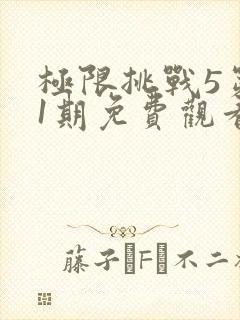 極限挑戰5第
1期免費觀看
藤子·F·不二雄